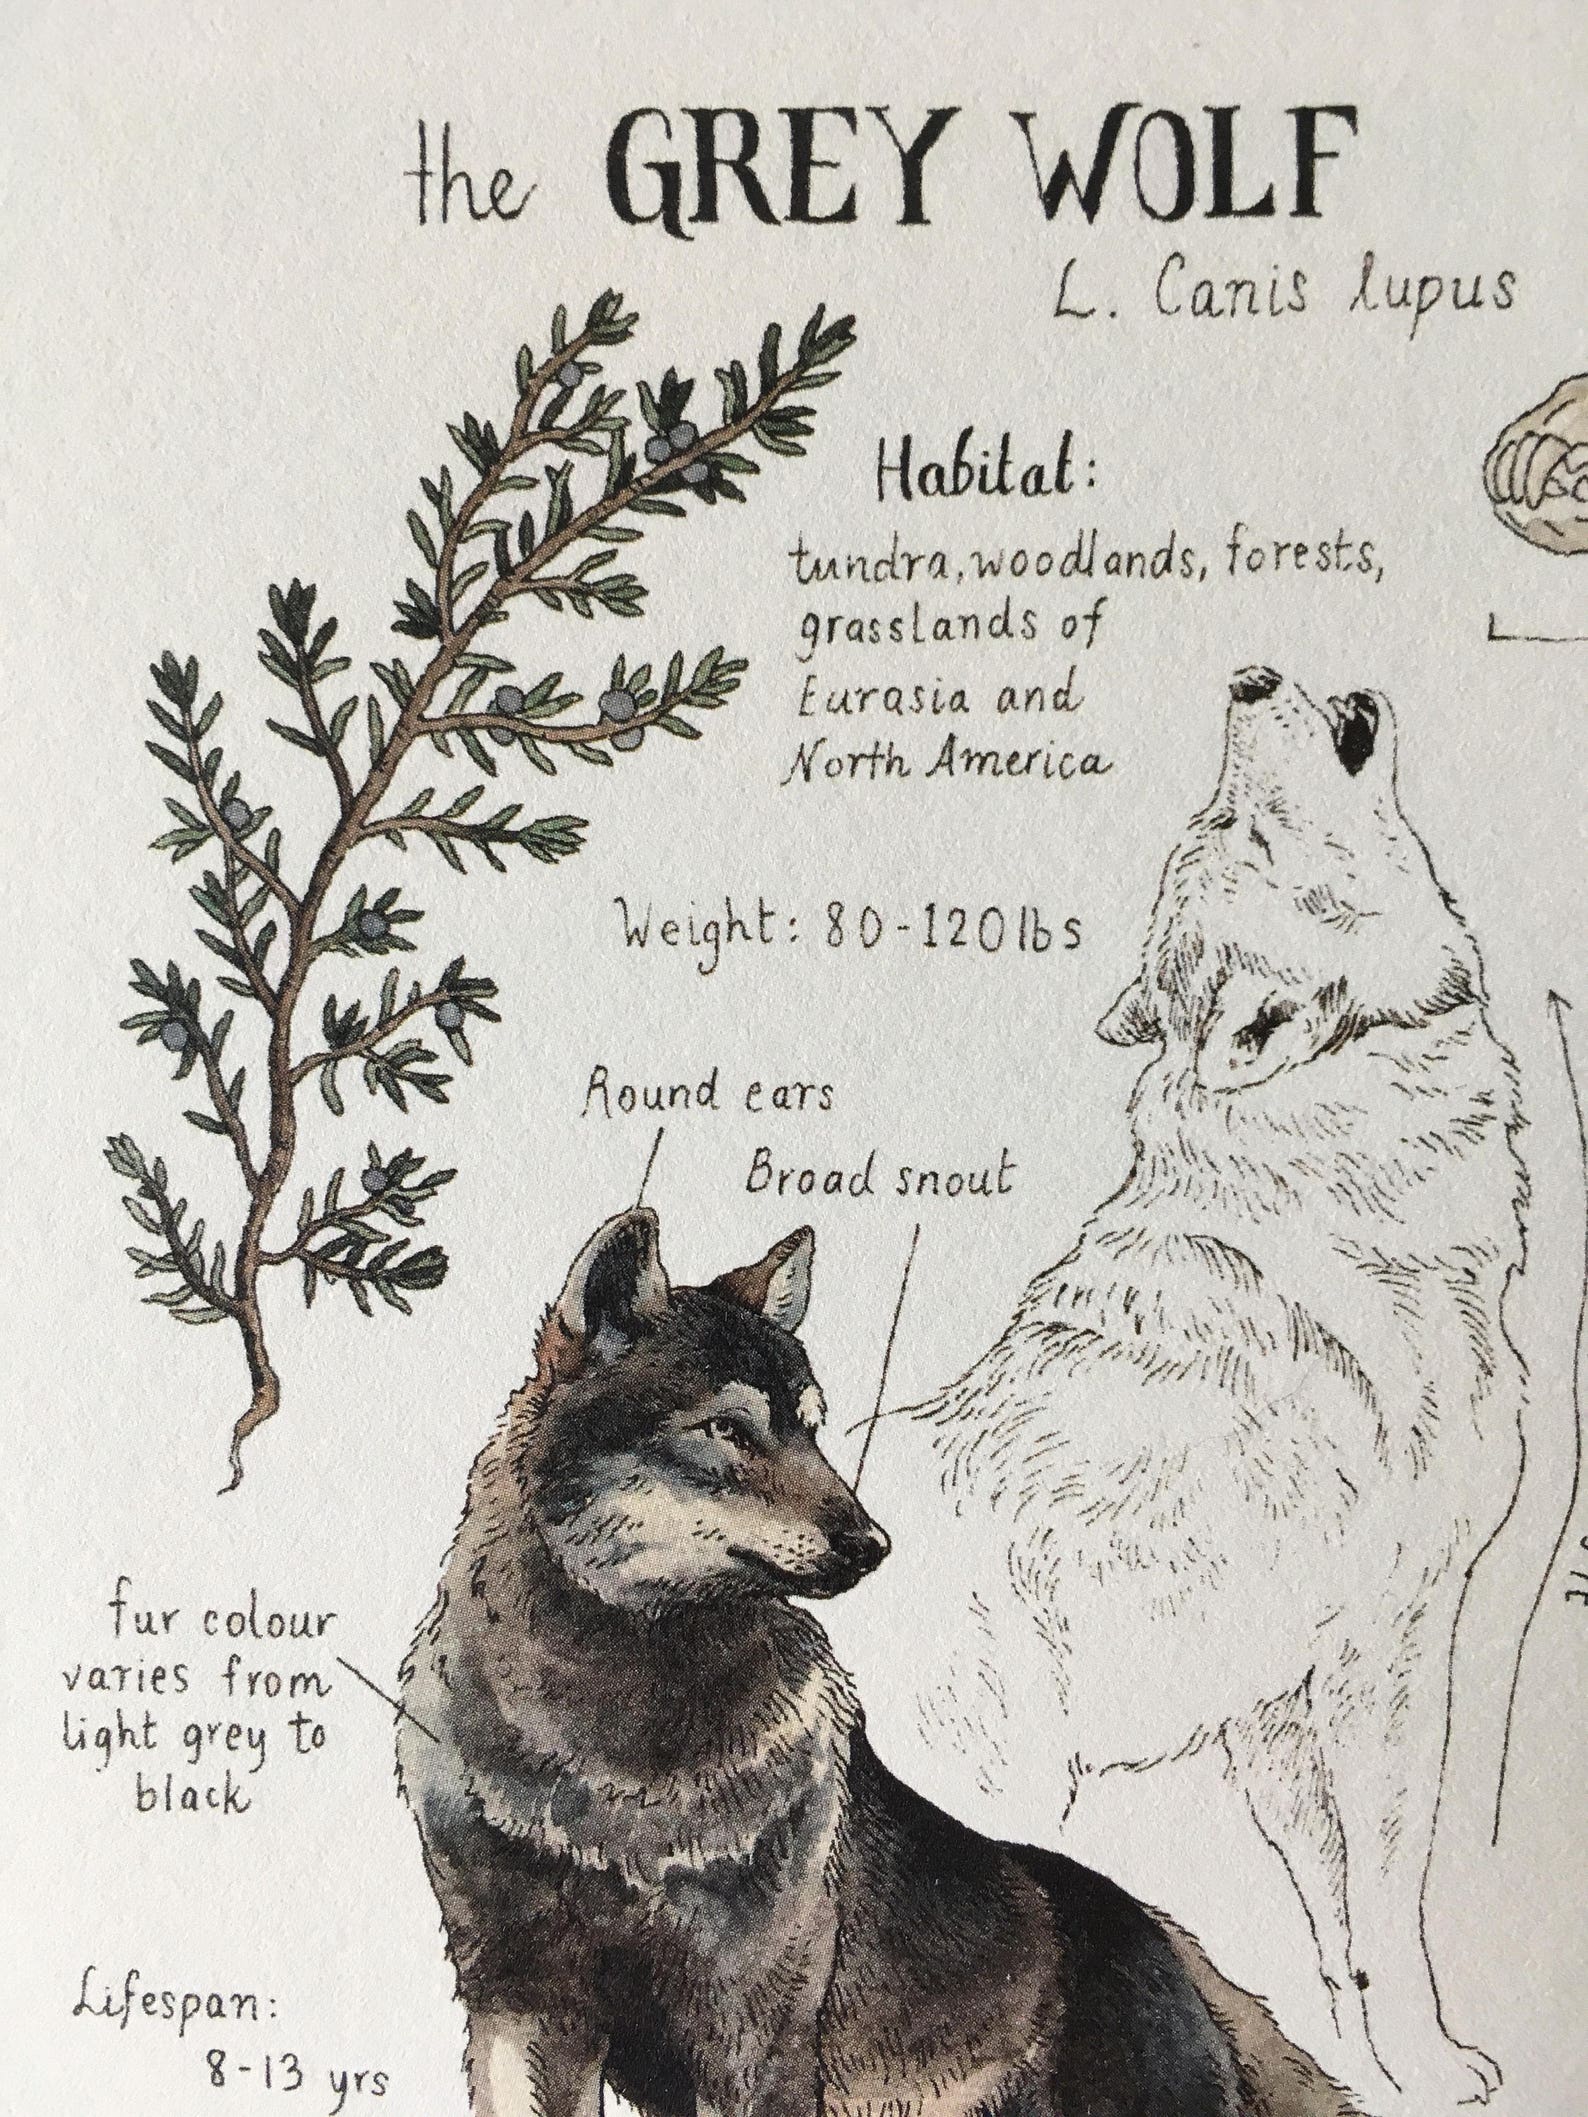 the GREY WOLF
L. Canis lupus
Habitat:
tundra, woodlands, forests,
grasslands of
Eurasia and
North America
Weight: 80-120 lbs
Round ears
Broad snout
fur colour
varies from
light grey to
black
Lifespan:
8-13 yrs